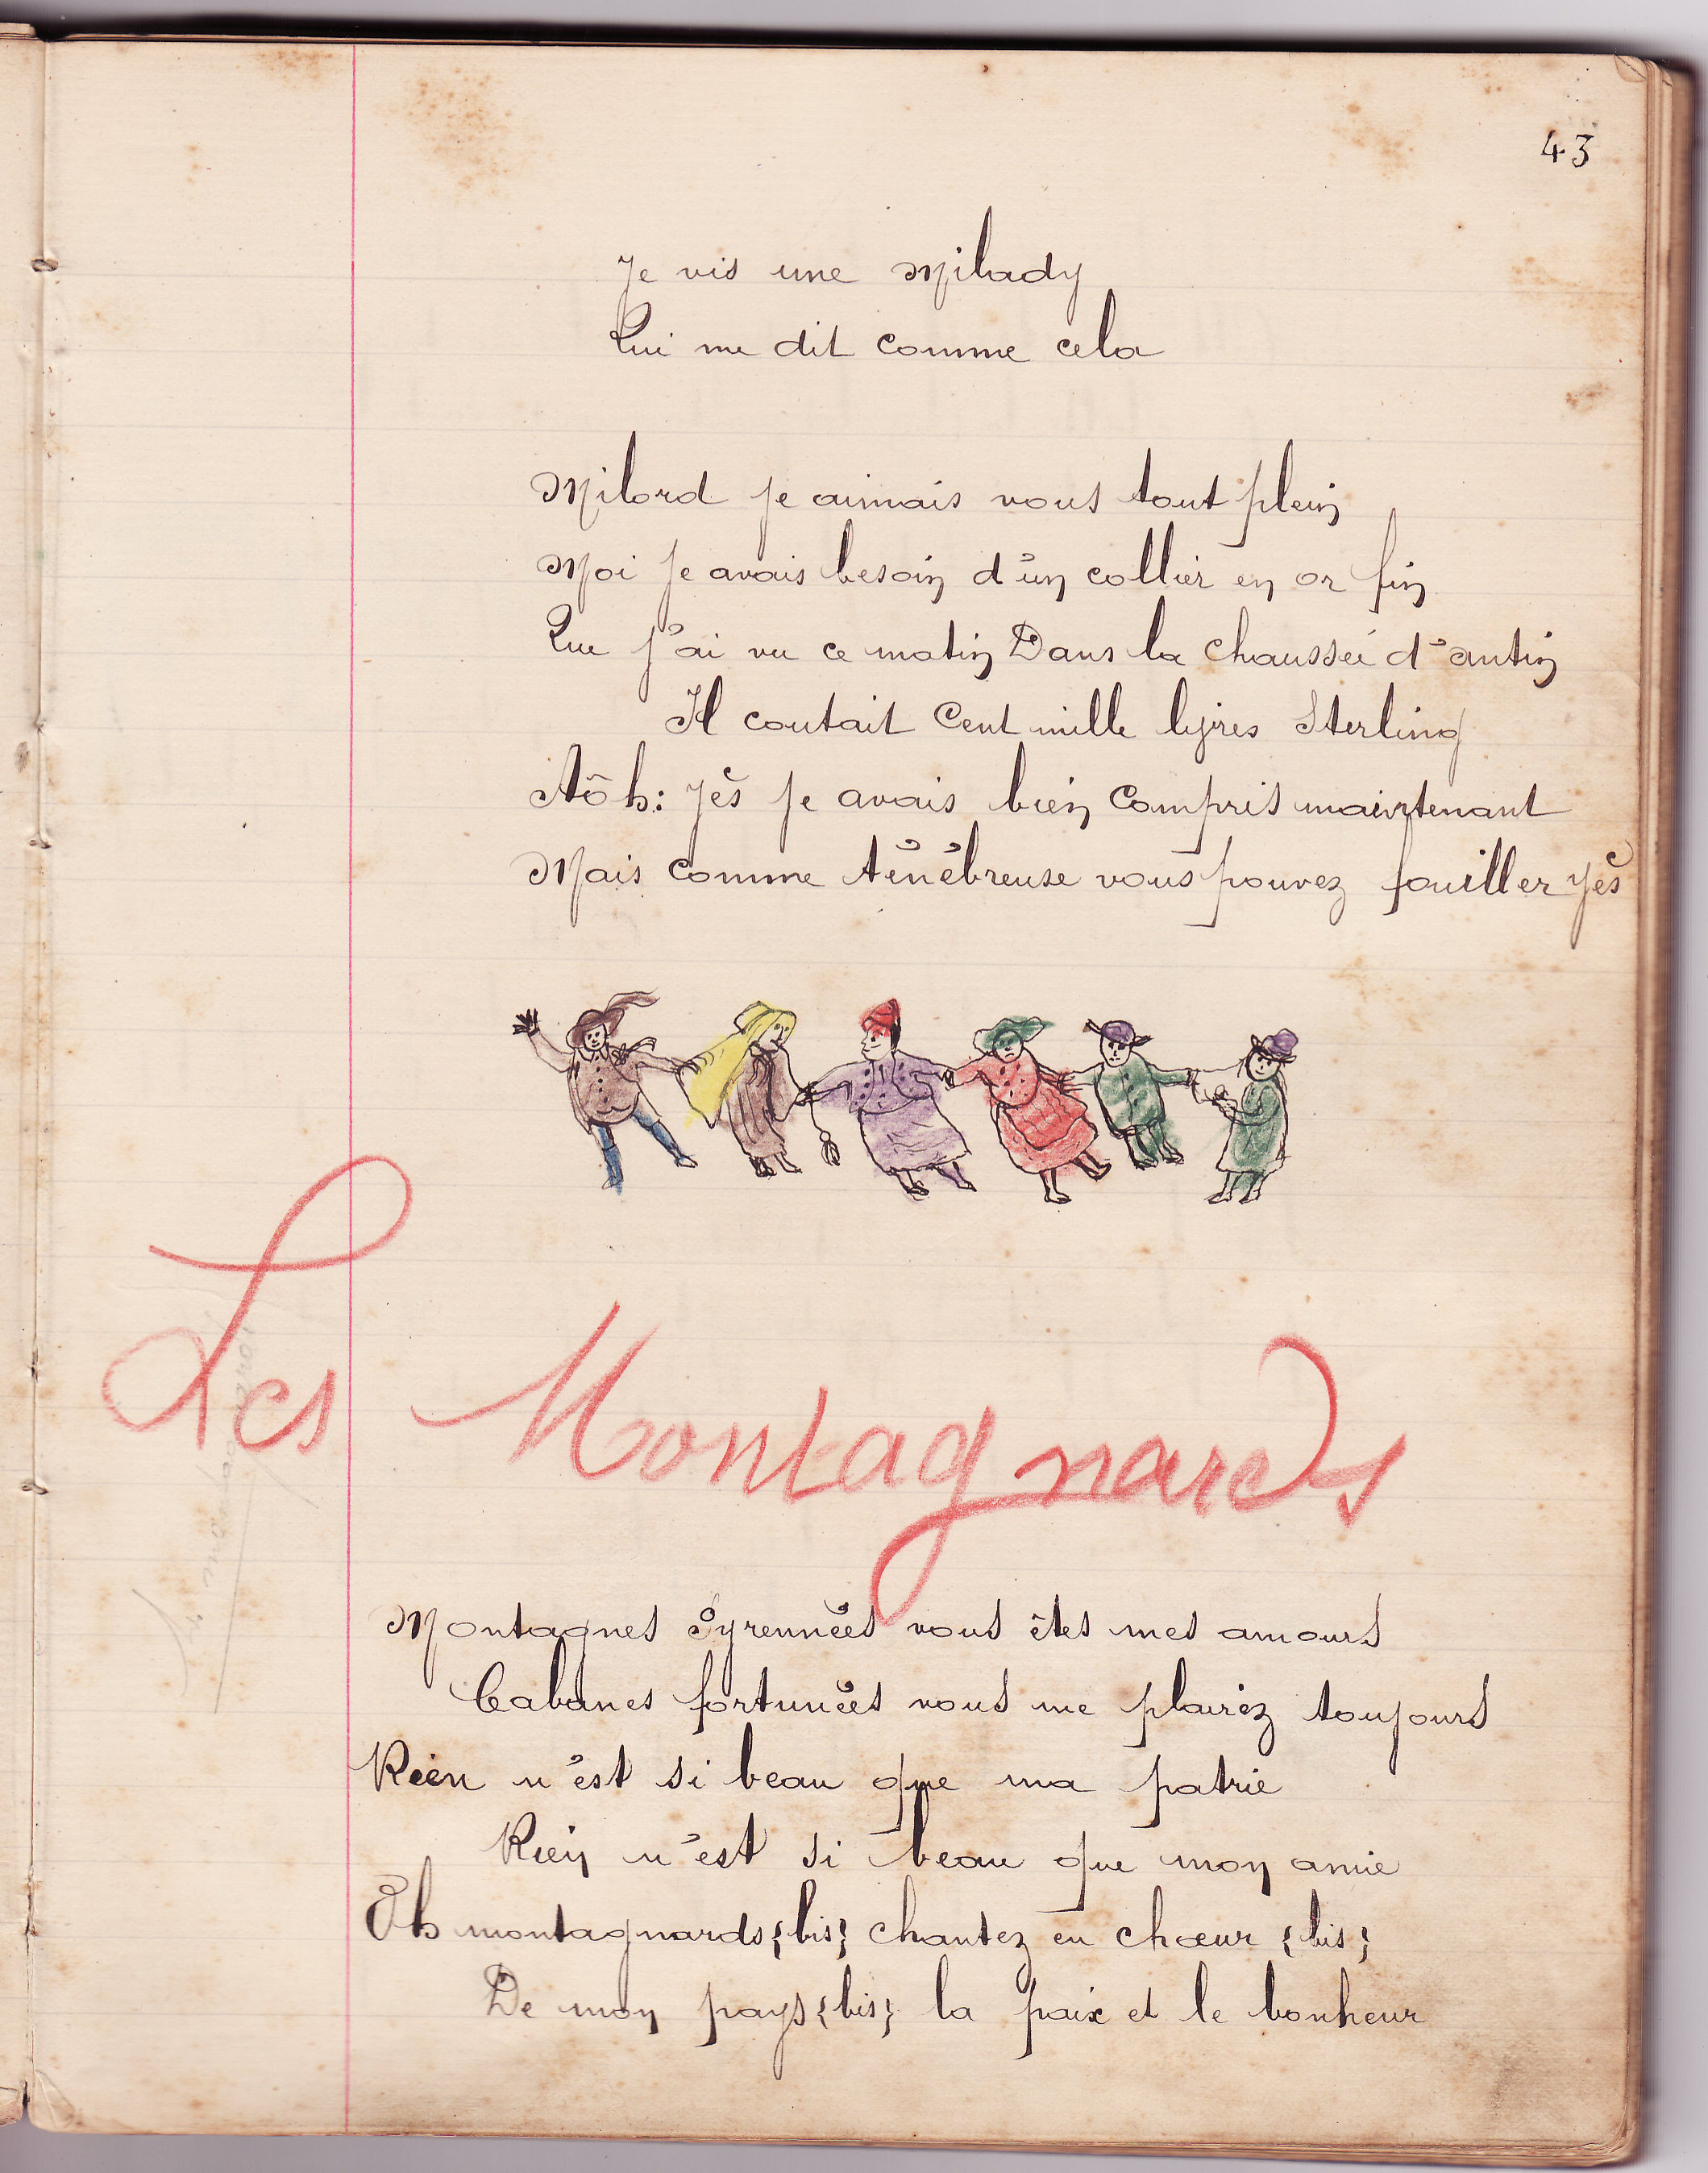 43
Je vis une Milady
Qui me dit comme cela
Milord je aimais vous tout plein
Moi je avais besoin d'un collier en or fin
Que j'ai vu ce matin Dans la chaussée d'antin
Il coutait Cent mille livres Sterling
Aôh: yès je avais bien Compris maintenant
Mais comme ténébreuse vous pouvez fouiller yès
Les Montagnards
Montagnes Pyrennées vous êtes mes amours
Cabanes fortunées vous me plairez toujours
Rien n'est si beau que ma patrie
Rien n'est si beau que mon amie
Oh montagnards {bis} chantez en chœur {bis}
De mon pays {bis} la paix et le bonheur